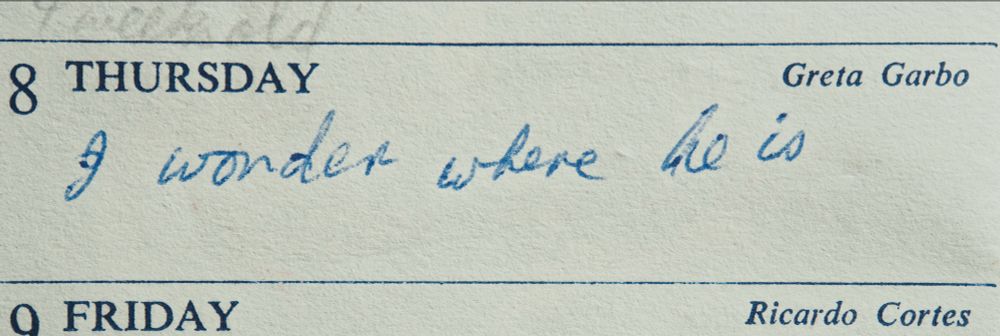 weeks old
8 THURSDAY Greta Garbo
I wonder where he is
9 FRIDAY Ricardo Cortes